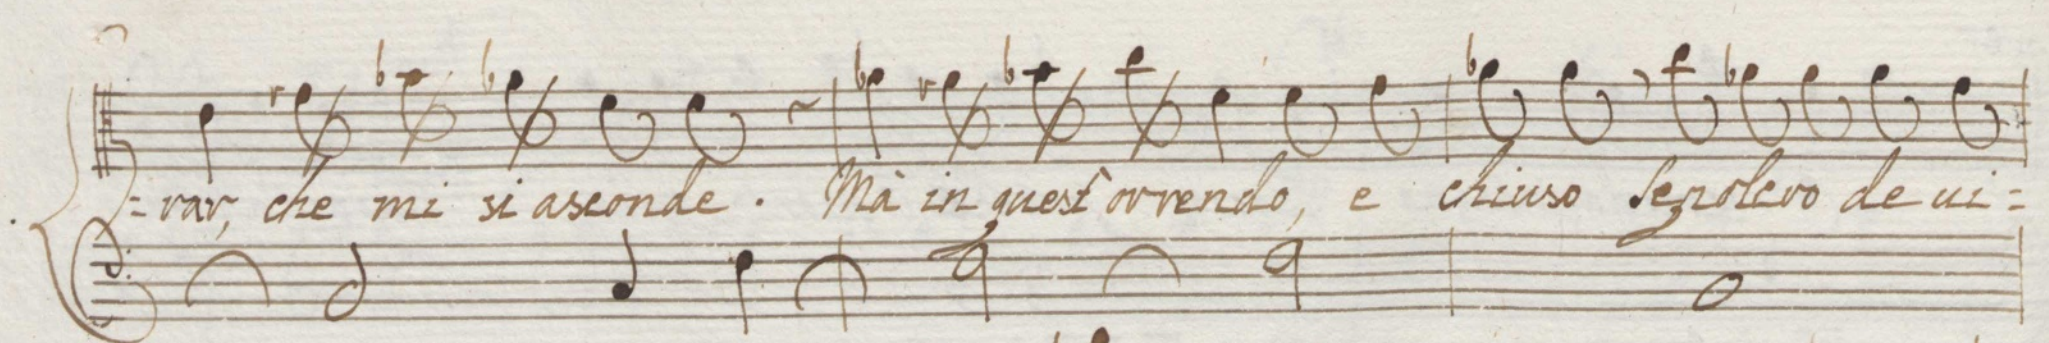 =rar, che mi si asconde. Mà in quest'orrendo, e chiuso Sepolcro de ui=